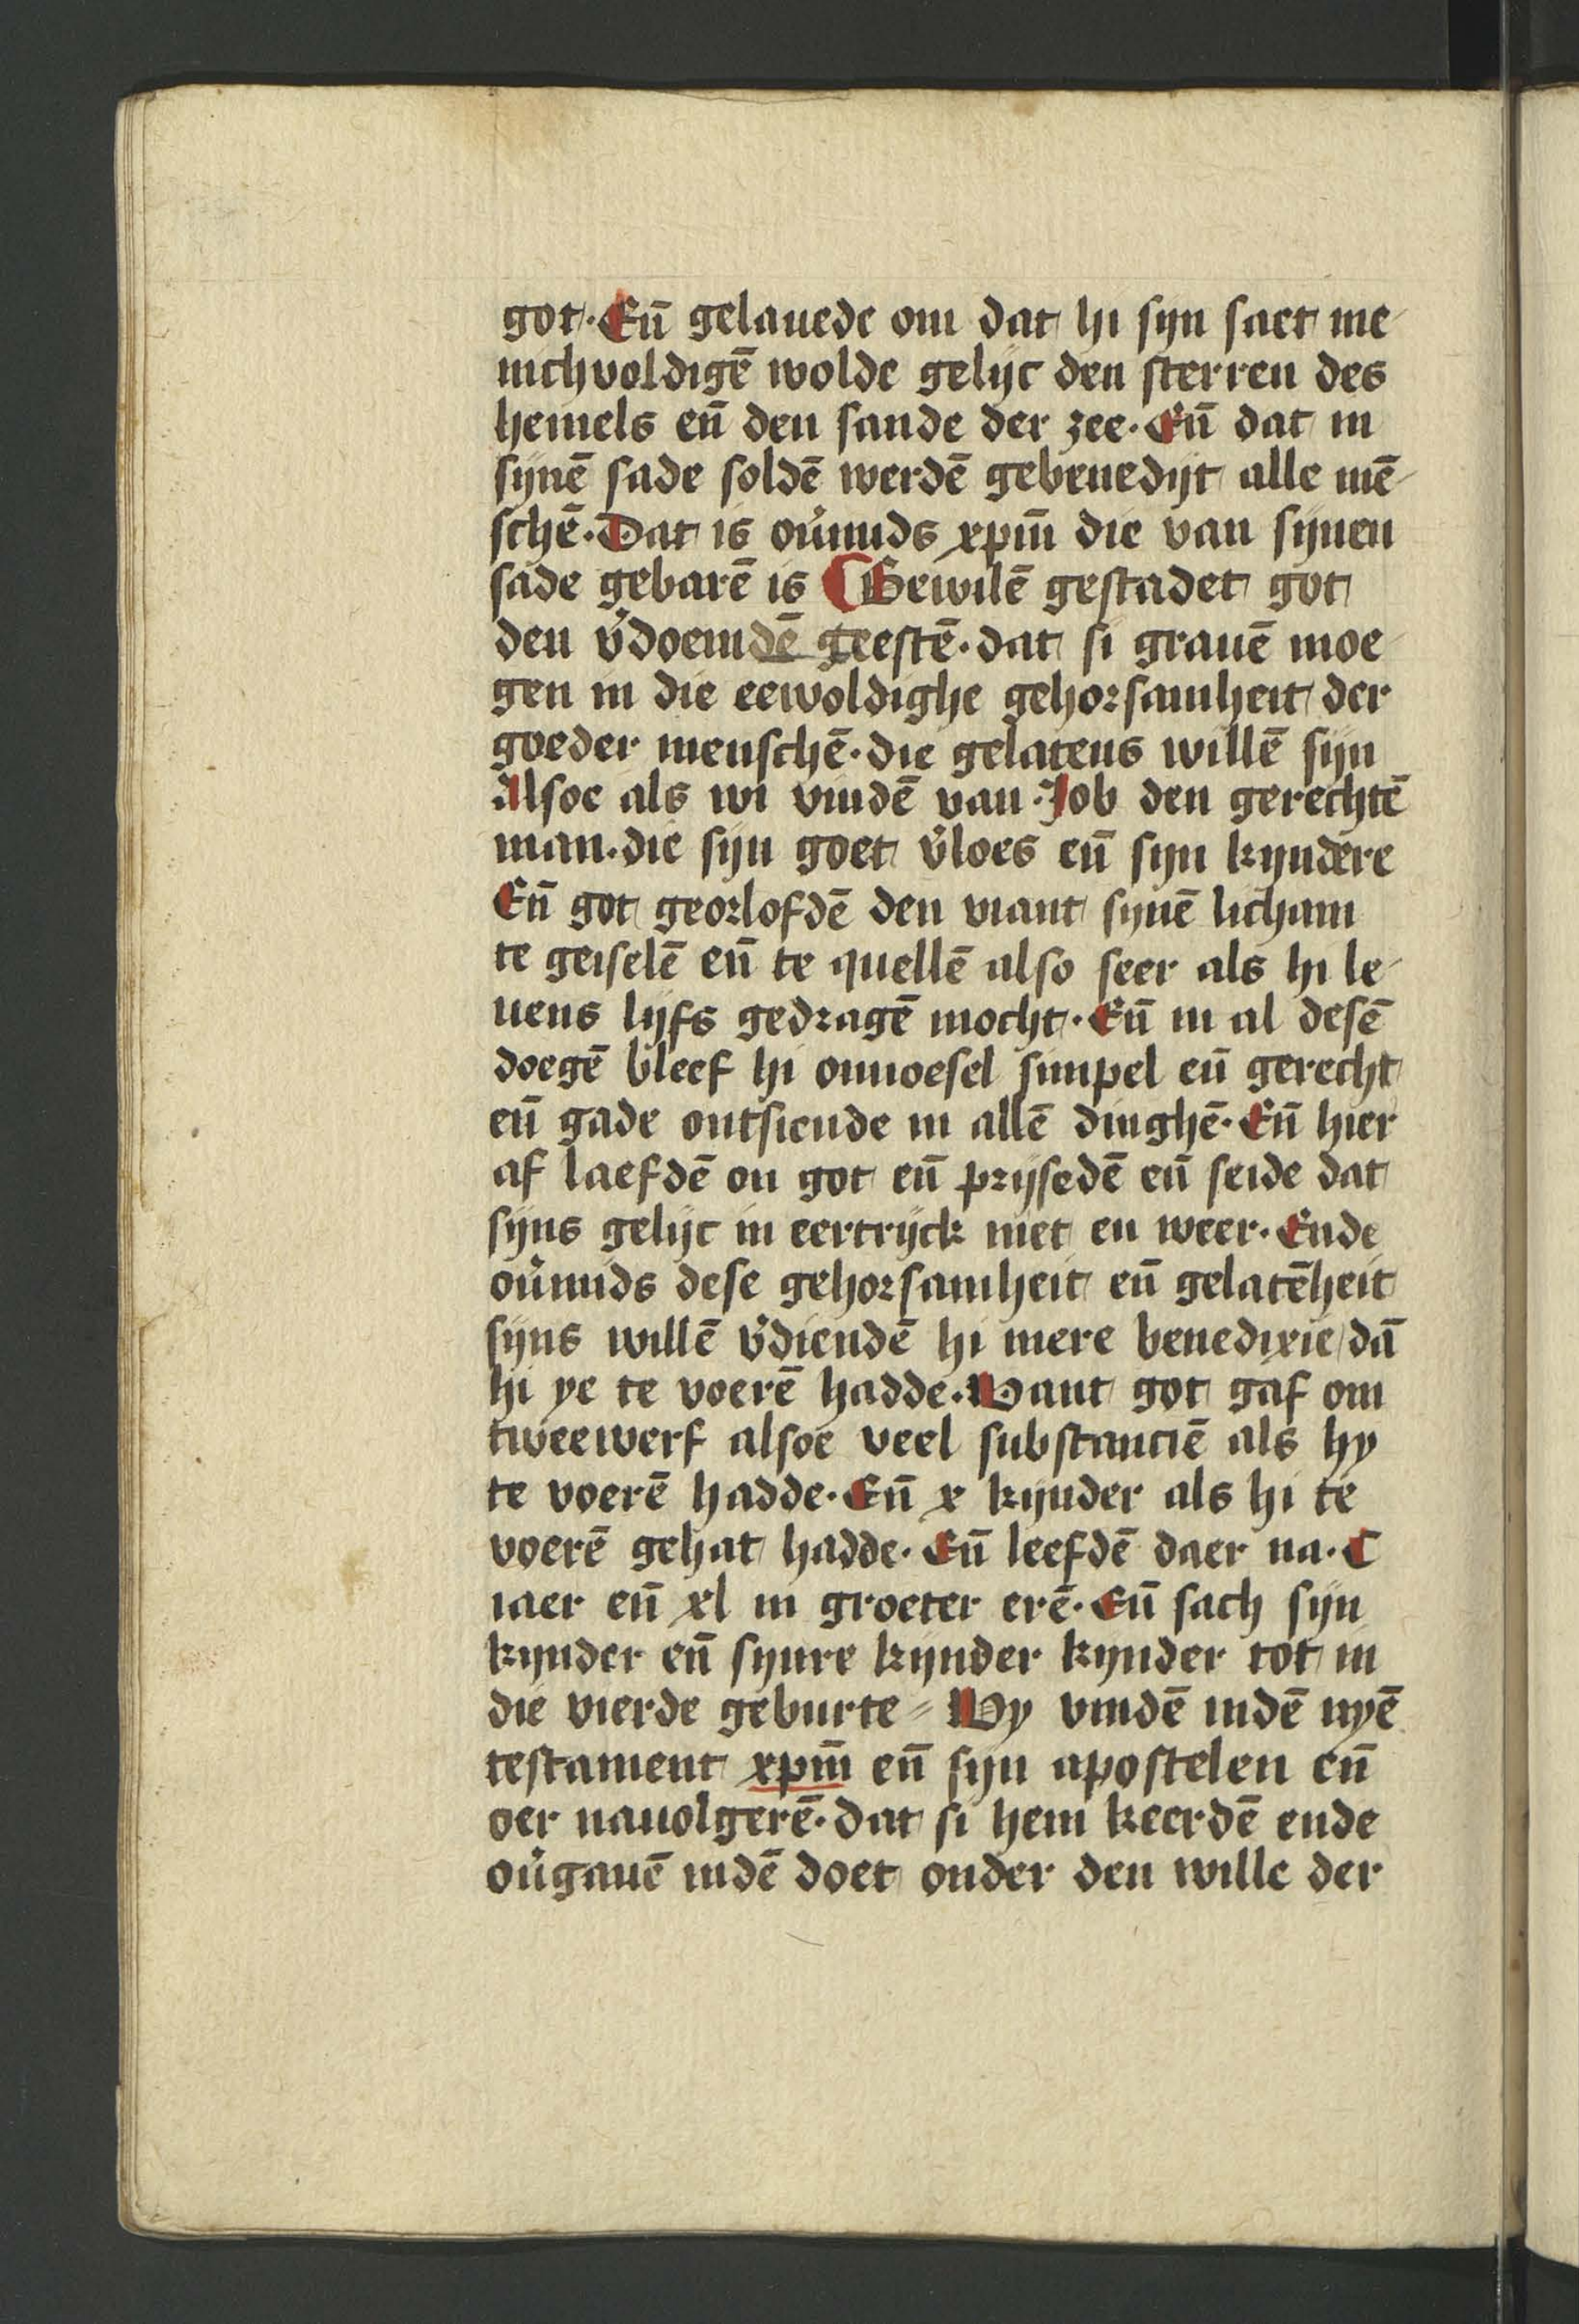 got. Eñ gelauede om dat hi syn saet me-
nichvoldigē wolde gelijc den sterren des
hemels eñ den sande der zee. Eñ dat in
synē sade soldē werdē gebenedijt alle mē-
schē. Dat is ou̾mids xpm̄ die van synen
sade gebarē is Bewilē gestadet got
den v̾doemdē geestē. dat si grauē moe-
gen in die eewoldighe gehorsamheit der
goeder menschē. die gelatens willē sijn
Alsoe als wi vindē van Job den gerechtē
man. die sijn goet v̾loes eñ sijn kyndere
Eñ got georlofdē den viant synē licham
te geiselē eñ te quellē also seer als hi le-
uens lijfs gedragē mocht. Eñ in al desē
doegē bleef hi onnoesel simpel eñ gerecht
eñ gade ontsiende in allē dinghē. Eñ hier
af laefdē on got eñ prijsedē eñ seide dat
sijns gelijc in eertrijck niet en weer. Ende
ou̾mids dese gehorsamheit eñ gelatēheit
sijns willē v̾diendē hi mere benedixie dā
hi ye te voerē hadde. Want got gaf om
tweewerf alsoe veel substanciē als hy
te voerē hadde. Eñ x kijnder als hi te
voerē gehat hadde. Eñ leefdē daer na. C
iaer eñ xl in groeter erē. Eñ sach sijn
kynder eñ synre kijnder kynder tot in
die vierde geburte Wy vindē indē nyē
testament xpm̄ eñ sijn apostelen eñ
oer nauolgerē. dat si hem keerdē ende
ou̾gauē indē doet onder den wille der